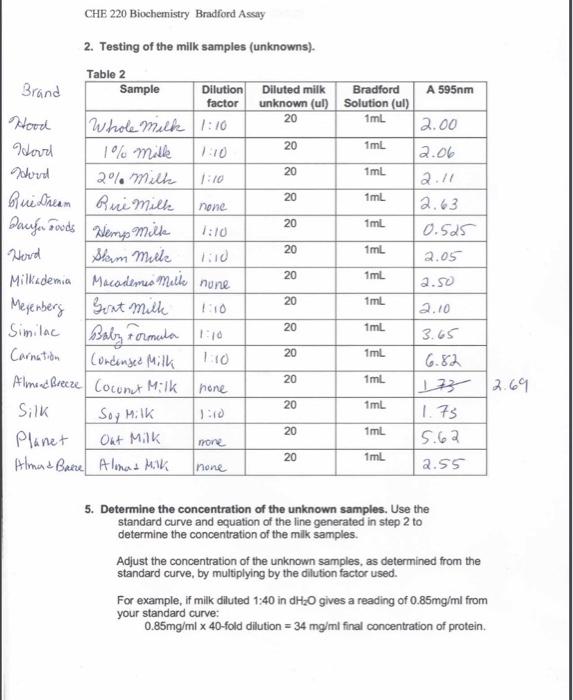 CHE 220 Biochemistry Bradford Assay
2. Testing of the milk samples (unknowns).
Table 2
Brand Sample Dilution factor Diluted milk unknown (ul) Bradford Solution (ul) A 595nm
Hood Whole Milk 1:10 20 1mL 2.00
Hood 1% Milk 1:10 20 1mL 2.06
Hood 2% Milk 1:10 20 1mL 2.11
Rice Dream Rice Milk none 20 1mL 2.63
Foods Hemp Milk 1:10 20 1mL 0.525
Hood Skim Milk 1:10 20 1mL 2.05
Milkademia Macademia Milk none 20 1mL 2.50
Meyenberg Goat Milk 1:10 20 1mL 2.10
Similac Baby Formula 1:10 20 1mL 3.65
Carnation Condensed Milk 1:10 20 1mL 6.82
Almond Breeze Coconut Milk none 20 1mL 1.73 2.69
Silk Soy Milk 1:10 20 1mL 1.75
Planet Oat Milk none 20 1mL 5.62
Almond Breeze Almond Milk none 20 1mL 2.55
5. Determine the concentration of the unknown samples. Use the
standard curve and equation of the line generated in step 2 to
determine the concentration of the milk samples.
Adjust the concentration of the unknown samples, as determined from the
standard curve, by multiplying by the dilution factor used.
For example, if milk diluted 1:40 in dH₂O gives a reading of 0.85mg/ml from
your standard curve:
0.85mg/ml x 40-fold dilution = 34 mg/ml final concentration of protein.